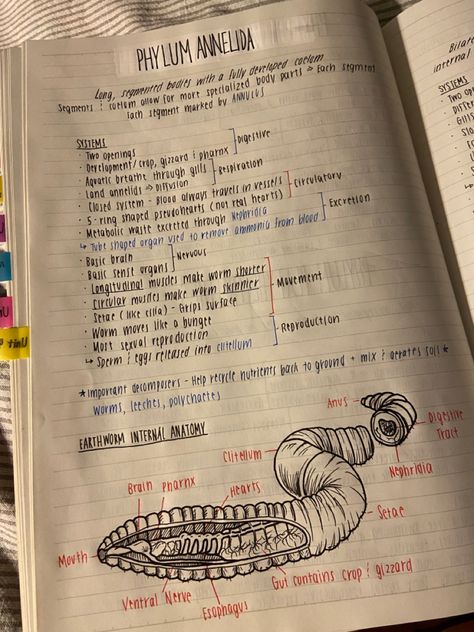 PHYLUM ANNELIDA
Long, segmented bodies with a fully developed coelom
Segments & coelom allow for more specialized body parts → Each segment
Each segment marked by ANNULUS
SYSTEMS
· Two openings
· Development/crop, gizzard & pharnx
Digestive
· Aquatic breathe through gills
· Land annelids => Diffusion
Respiration
· Closed system - Blood always travels in vessels
· 5-ring shaped pseudohearts (not real hearts)
Circulatory
· Metabolic waste excreted through Nephridia
↳ Tube shaped organ used to remove ammonia from blood
Excretion
· Basic brain
· Basic sense organs
Nervous
· Longitudinal muscles make worm shorter
· Circular muscles make worm skinnier
· Setae (like cilia) - Grips surface
· Worm moves like a bungee
Movement
· Most sexual reproduction
↳ Sperm & eggs released into clitellum
Reproduction
★Important decomposers - Help recycle nutrients back to ground + mix & aerates soil★
Worms, leeches, polychaetes
EARTHWORM INTERNAL ANATOMY
Anus
Digestive
Tract
Clitellum
Nephridia
Brain
Pharnx
Hearts
Setae
Mouth
Ventral Nerve
Esophagus
Gut contains crop & gizzard
internal
SYSTEMS